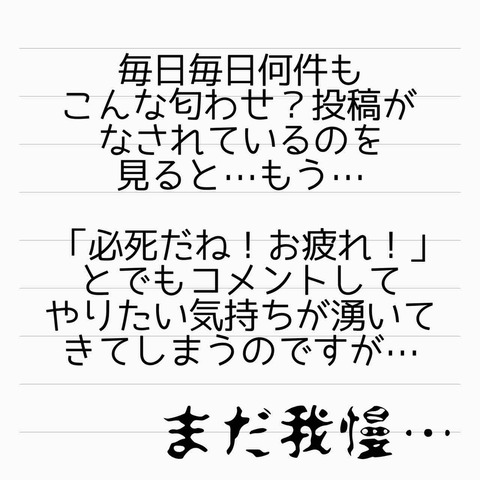 毎日毎日何件も
こんな匂わせ？投稿が
なされているのを
見ると…もう…
「必死だね！お疲れ！」
とでもコメントして
やりたい気持ちが湧いて
きてしまうのですが…
まだ我慢…